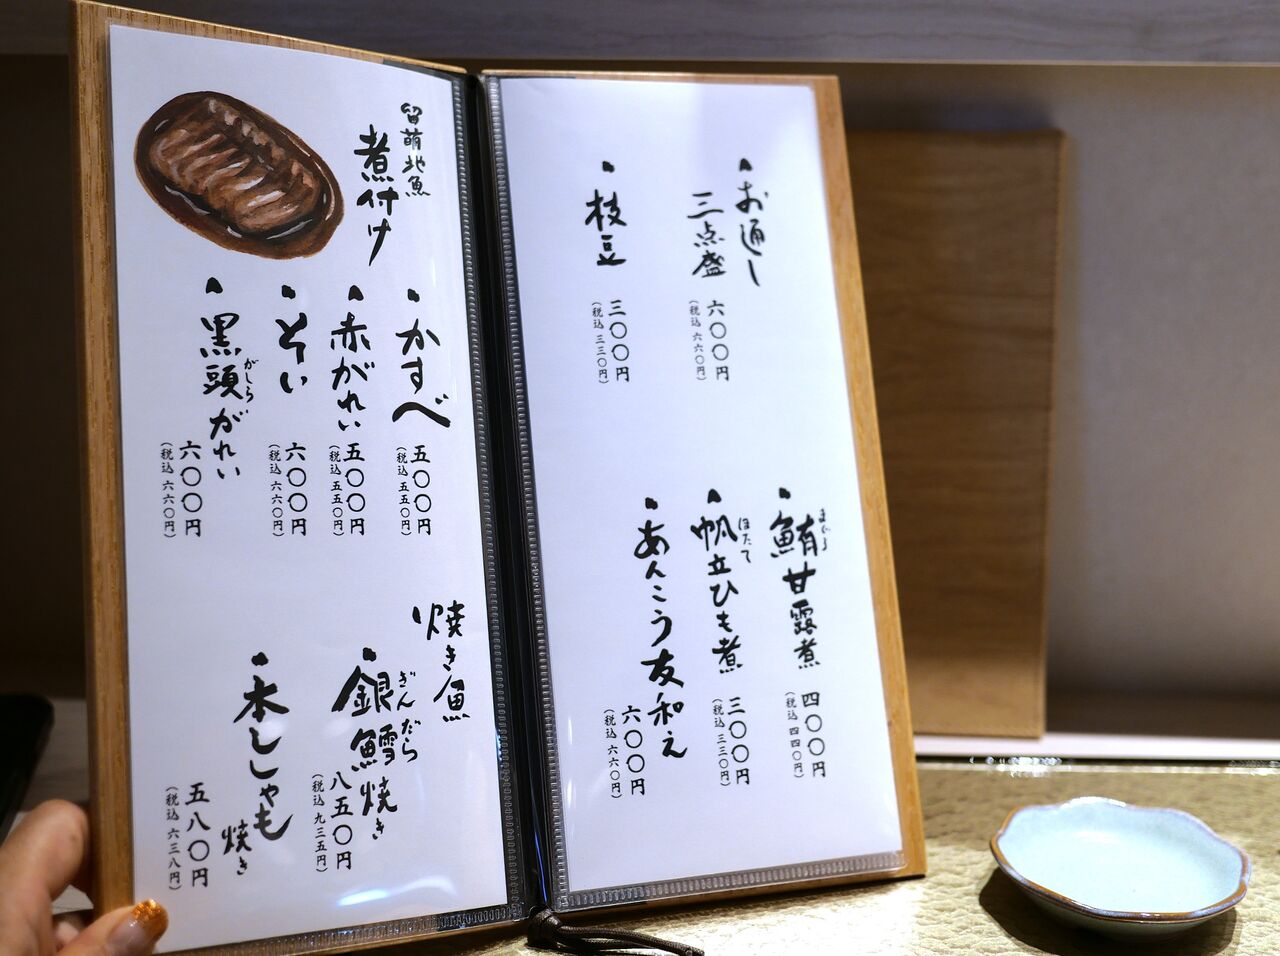 お通し
三点盛
六〇〇円
（税込 六六〇円）
枝豆
三〇〇円
（税込 三三〇円）
まぐろ
鮪甘露煮
四〇〇円
（税込 四四〇円）
ほたて
帆立ひも煮
三〇〇円
（税込 三三〇円）
あんこう友和え
六〇〇円
（税込 六六〇円）
留萌地魚
煮付け
かすべ
五〇〇円
（税込 五五〇円）
赤がれい
五〇〇円
（税込 五五〇円）
そい
六〇〇円
（税込 六六〇円）
がしら
黒頭がれい
六〇〇円
（税込 六六〇円）
焼き魚
ぎんだら
銀鱈焼き
八五〇円
（税込 九三五円）
本ししゃも焼き
五八〇円
（税込 六三八円）